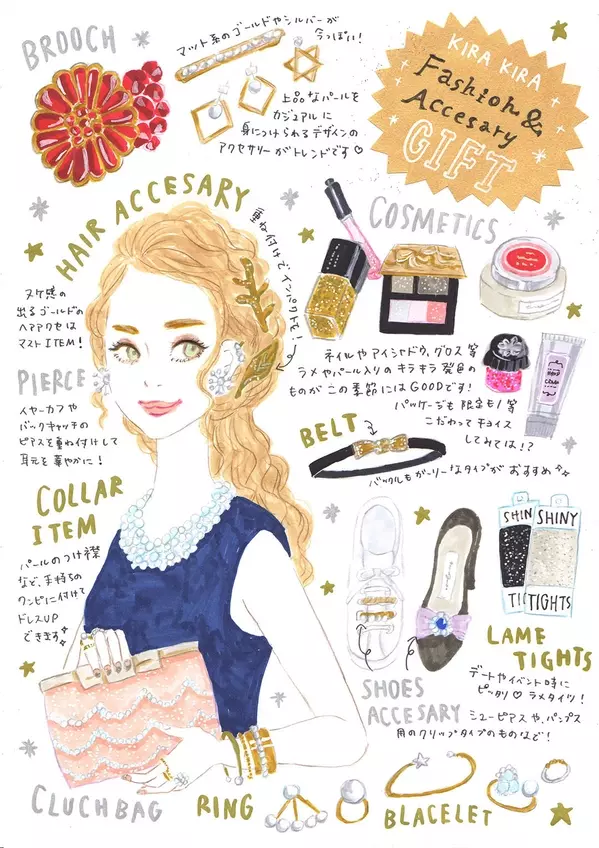 BROOCH
マット系のゴールドやシルバーが
今っぽい!
上品なパールを
カジュアルに
身につけられるデザインの
アクセサリーがトレンドです♡
KIRA KIRA
Fashion &
Accesary
GIFT
HAIR ACCESARY
ヌケ感の
出るゴールドの
ヘアアクセは
マストITEM!
COSMETICS
ネイルやアイシャドウ、グロス等
ラメやパール入りのキラキラ発色の
ものがこの季節にはGOODです!
パッケージも限定もノ等
こだわってチョイス
してみては!?
PIERCE
イヤーカフや
バックキャッチの
ピアスを重ね付けして
耳元を華やかに!
BELT
バックルもガーリーなタイプがおすすめ
COLLAR
ITEM
パールのつけ襟
など、手持ちの
ワンピに付けて
ドレスUP
できます
SHINY
TIGHTS
LAME
TIGHTS
デートやイベント時に
ピッタリ♡ラメタイツ!
SHOES
ACCESARY
シューピアスや、パンプス
用のクリップタイプのものなど!
CLUCHBAG
RING
BLACELET